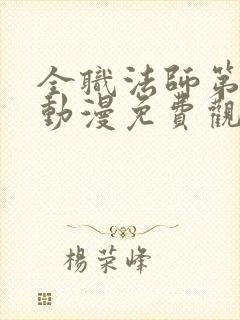 全職法師第
動漫免費觀
楊荣峰